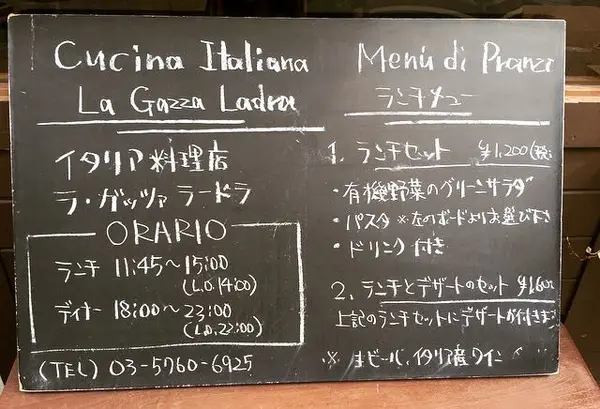 Cucina Italiana
La Gazza Ladra
イタリア料理店
ラ・ガッツァ ラードラ
ORARIO
ランチ 11:45～15:00
(L.O.14:00)
ディナー 18:00～23:00
(L.O.22:00)
(TEL) 03-5760-6925
Menù di Pranzi
ランチメニュー
1. ランチセット ¥1,200(税
・有機野菜のグリーンサラダ
・パスタ ※左のボードよりお選び下さ
・ドリンク付き
2. ランチとデザートのセット ¥1,600
上記のランチセットにデザートが付きます
※ 生ビール、イタリア産ワイン